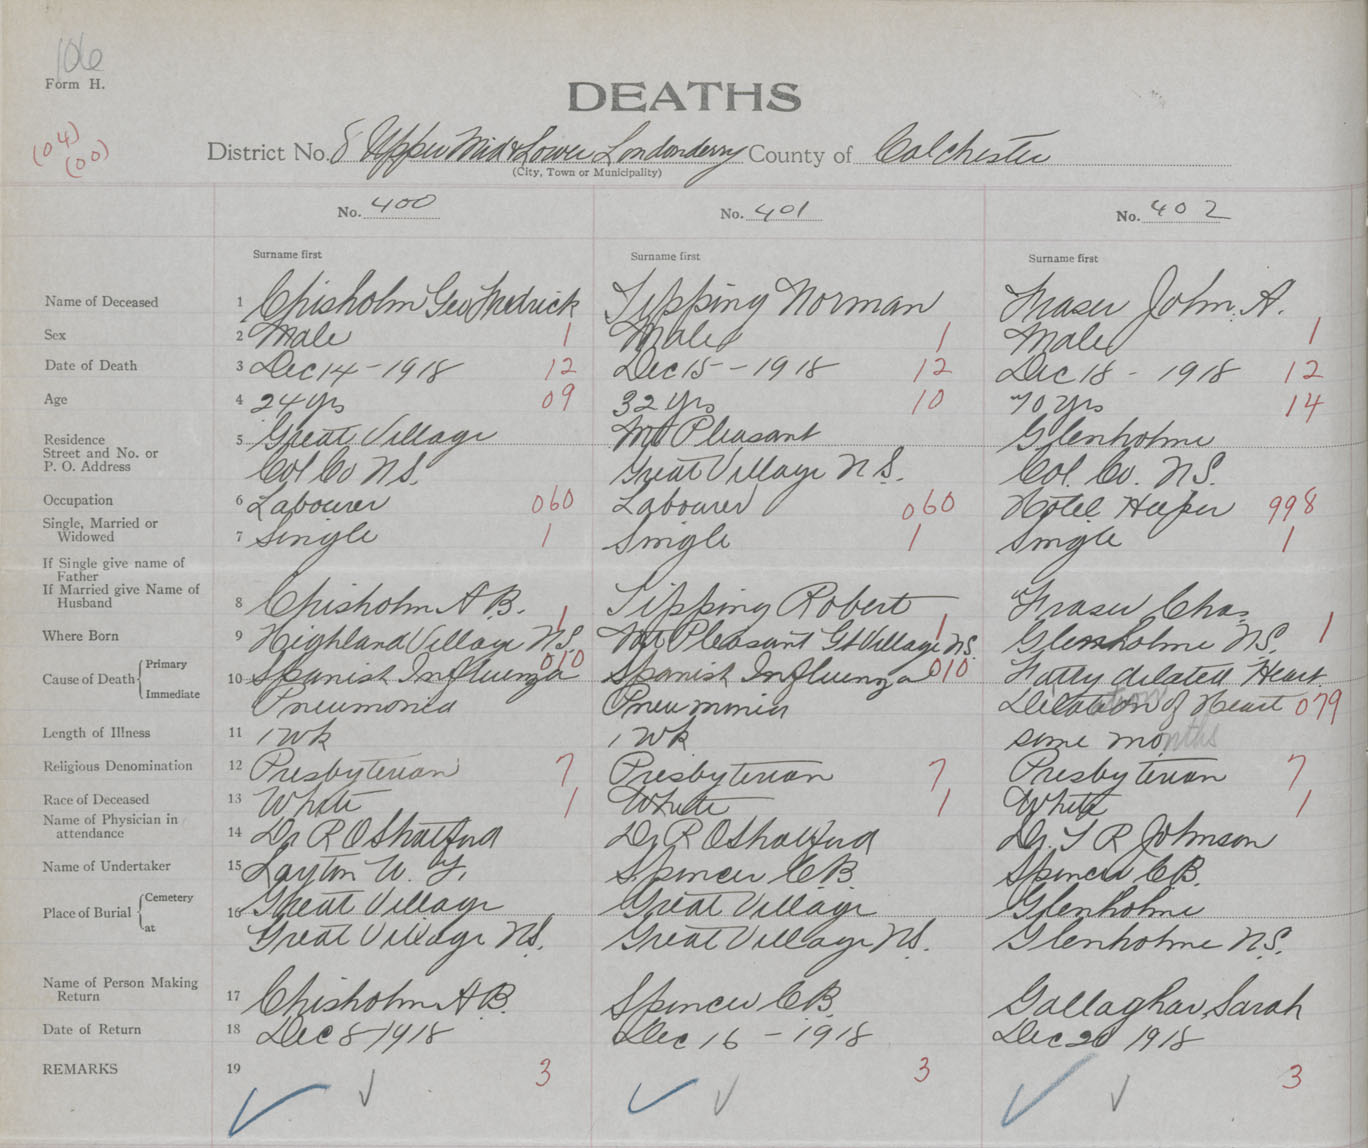 106
Form H.
DEATHS
(04)
(00)
District No. 8 Upper Mid & Lower Londonderry County of Colchester
(City, Town or Municipality)
No. 400 No. 401 No. 402
Surname first Surname first Surname first
Name of Deceased 1 Chisholm Geo Fredrick Tipping Norman Fraser John. A.
Sex 2 Male 1 Male 1 Male 1
Date of Death 3 Dec 14 - 1918 12 Dec 15 - 1918 12 Dec 18 - 1918 12
Age 4 24 yrs 09 32 yrs 10 70 yrs 14
Residence 5 Great Village Mt Pleasant Glenholme
Street and No. or
P. O. Address Col. Co N.S. Great Village N.S. Col. Co. N.S.
Occupation 6 Labourer 060 Labourer 060 Hotel Keeper 998
Single, Married or
Widowed 7 Single 1 Single 1 Single 1
If Single give name of
Father
If Married give Name of
Husband 8 Chisholm A B. Tipping Robert Fraser Chas
Where Born 9 Highland Village N.S. 1 Mt Pleasant Gt Village N.S. 1 Glenholme N.S. 1
Cause of Death Primary 10 Spanish Influenza 010 Spanish Influenza 010 Fatty dilated Heart
Immediate Pneumonia Pneumonia of Heart 079
Length of Illness 11 1 wk 1 wk some months
Religious Denomination 12 Presbyterian 7 Presbyterian 7 Presbyterian 7
Race of Deceased 13 White 1 White 1 White 1
Name of Physician in
attendance 14 Dr R O Shatford Dr R O Shatford Dr. T R Johnson
Name of Undertaker 15 Layton W. Y. Spencer C.B. Spencer C.B.
Place of Burial Cemetery 16 Great Village Great Village Glenholme
at Great Village N.S. Great Village N.S. Glenholme N.S.
Name of Person Making
Return 17 Chisholm A B. Spencer C.B. Gallaghar, Sarah
Date of Return 18 Dec 8 - 1918 Dec 16 - 1918 Dec 20 1918
REMARKS 19 3 3 3